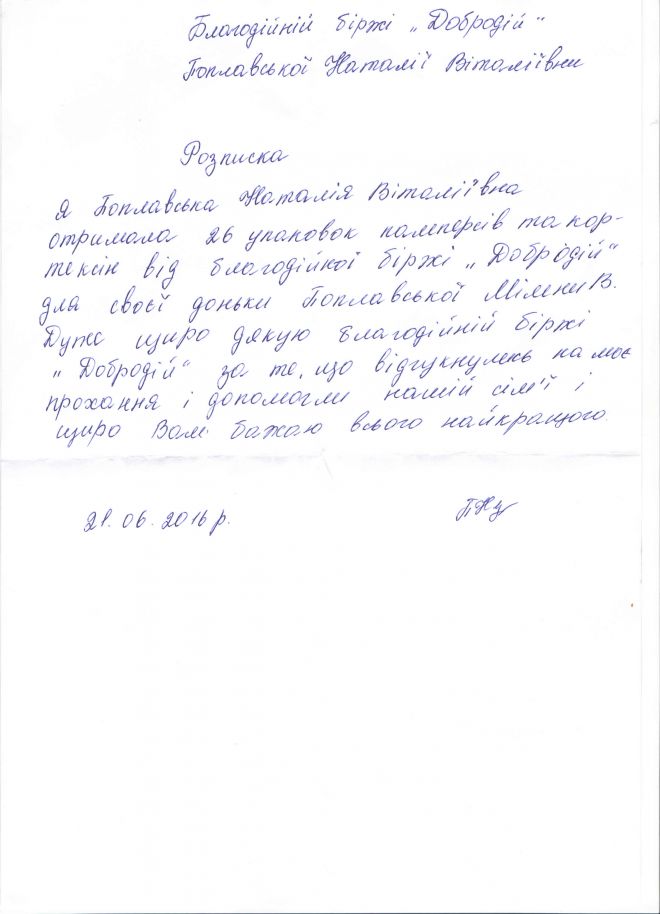 Благодійній біржі „Добродій"
Поплавської Наталії Віталіївни
Розписка
Я Поплавська Наталія Віталіївна
отримала 26 упаковок памперсів та кор-
тексін від благодійної біржі „Добродій"
для своєї доньки Поплавської Мілени В.
Дуже щиро дякую благодійній біржі
„Добродій" за те, що відгукнулись на моє
прохання і допомогли нашій сім'ї і
щиро Вам бажаю всього найкращого.
21.06.2016 р.